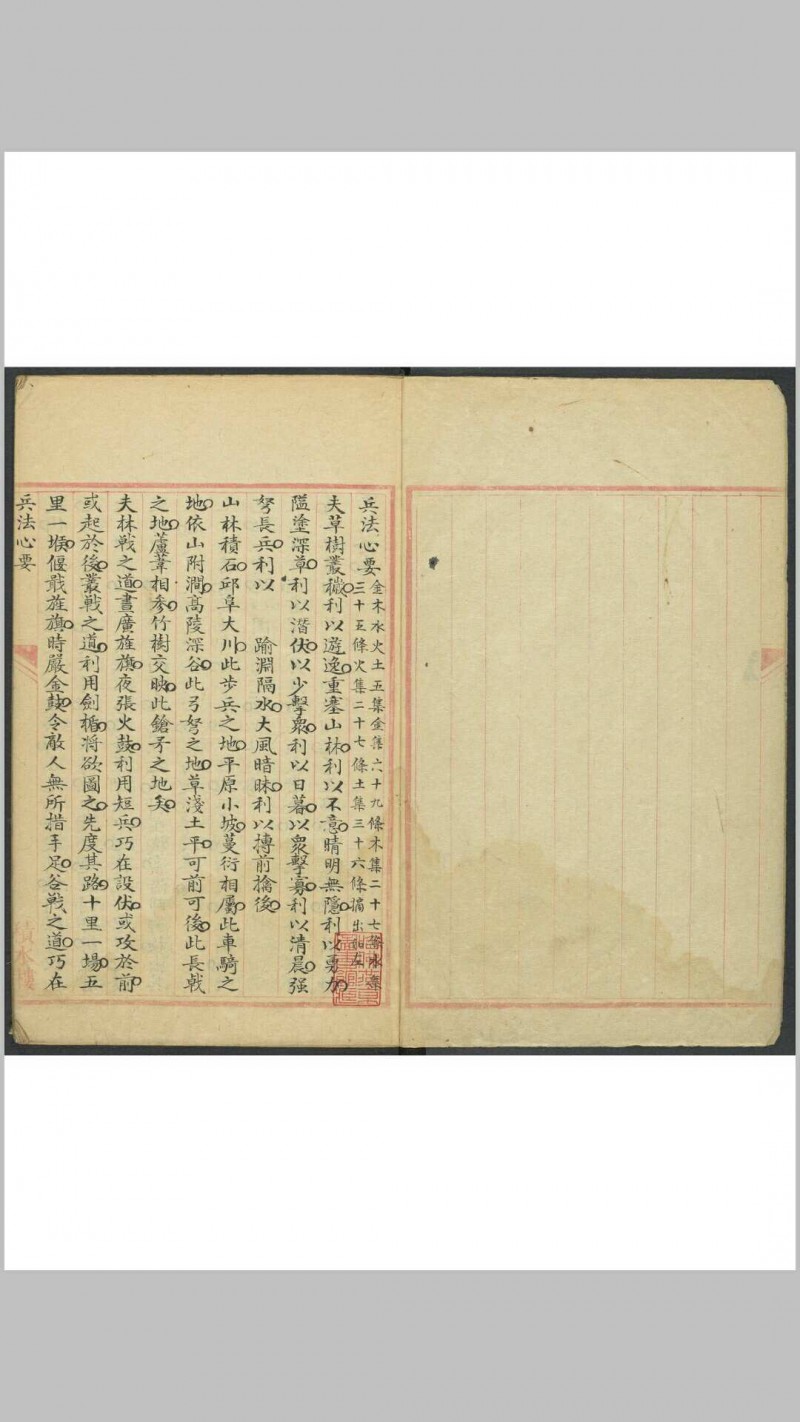 兵法心要
金木水火土五集金集六十九條木集二十七條水集
三十五條火集二十七條土集三十六條摘出如左
夫草樹叢穢利以遊逸重塞山林利以不意晴明無隱利以勇力
隘塗深草利以潛伏以少擊衆利以日暮以衆擊寡利以清晨强
弩長兵利以　踰淵隔水大風暗昧利以搏前擒後
山林積石邱阜大川此步兵之地平原小坡蔓衍相屬此車騎之
地依山附澗高陵深谷此弓弩之地草淺土平可前可後此長戟
之地蘆葦相參竹樹交映此鎗矛之地矣
夫林戰之道晝廣旌旗夜張火鼓利用短兵巧在設伏或攻於前
或起於後叢戰之道利用劍楯將欲圖之先度其路十里一場五
里一堠偃戢旌旗時嚴金鼓令敵人無所措手足谷戰之道巧在
兵法心要